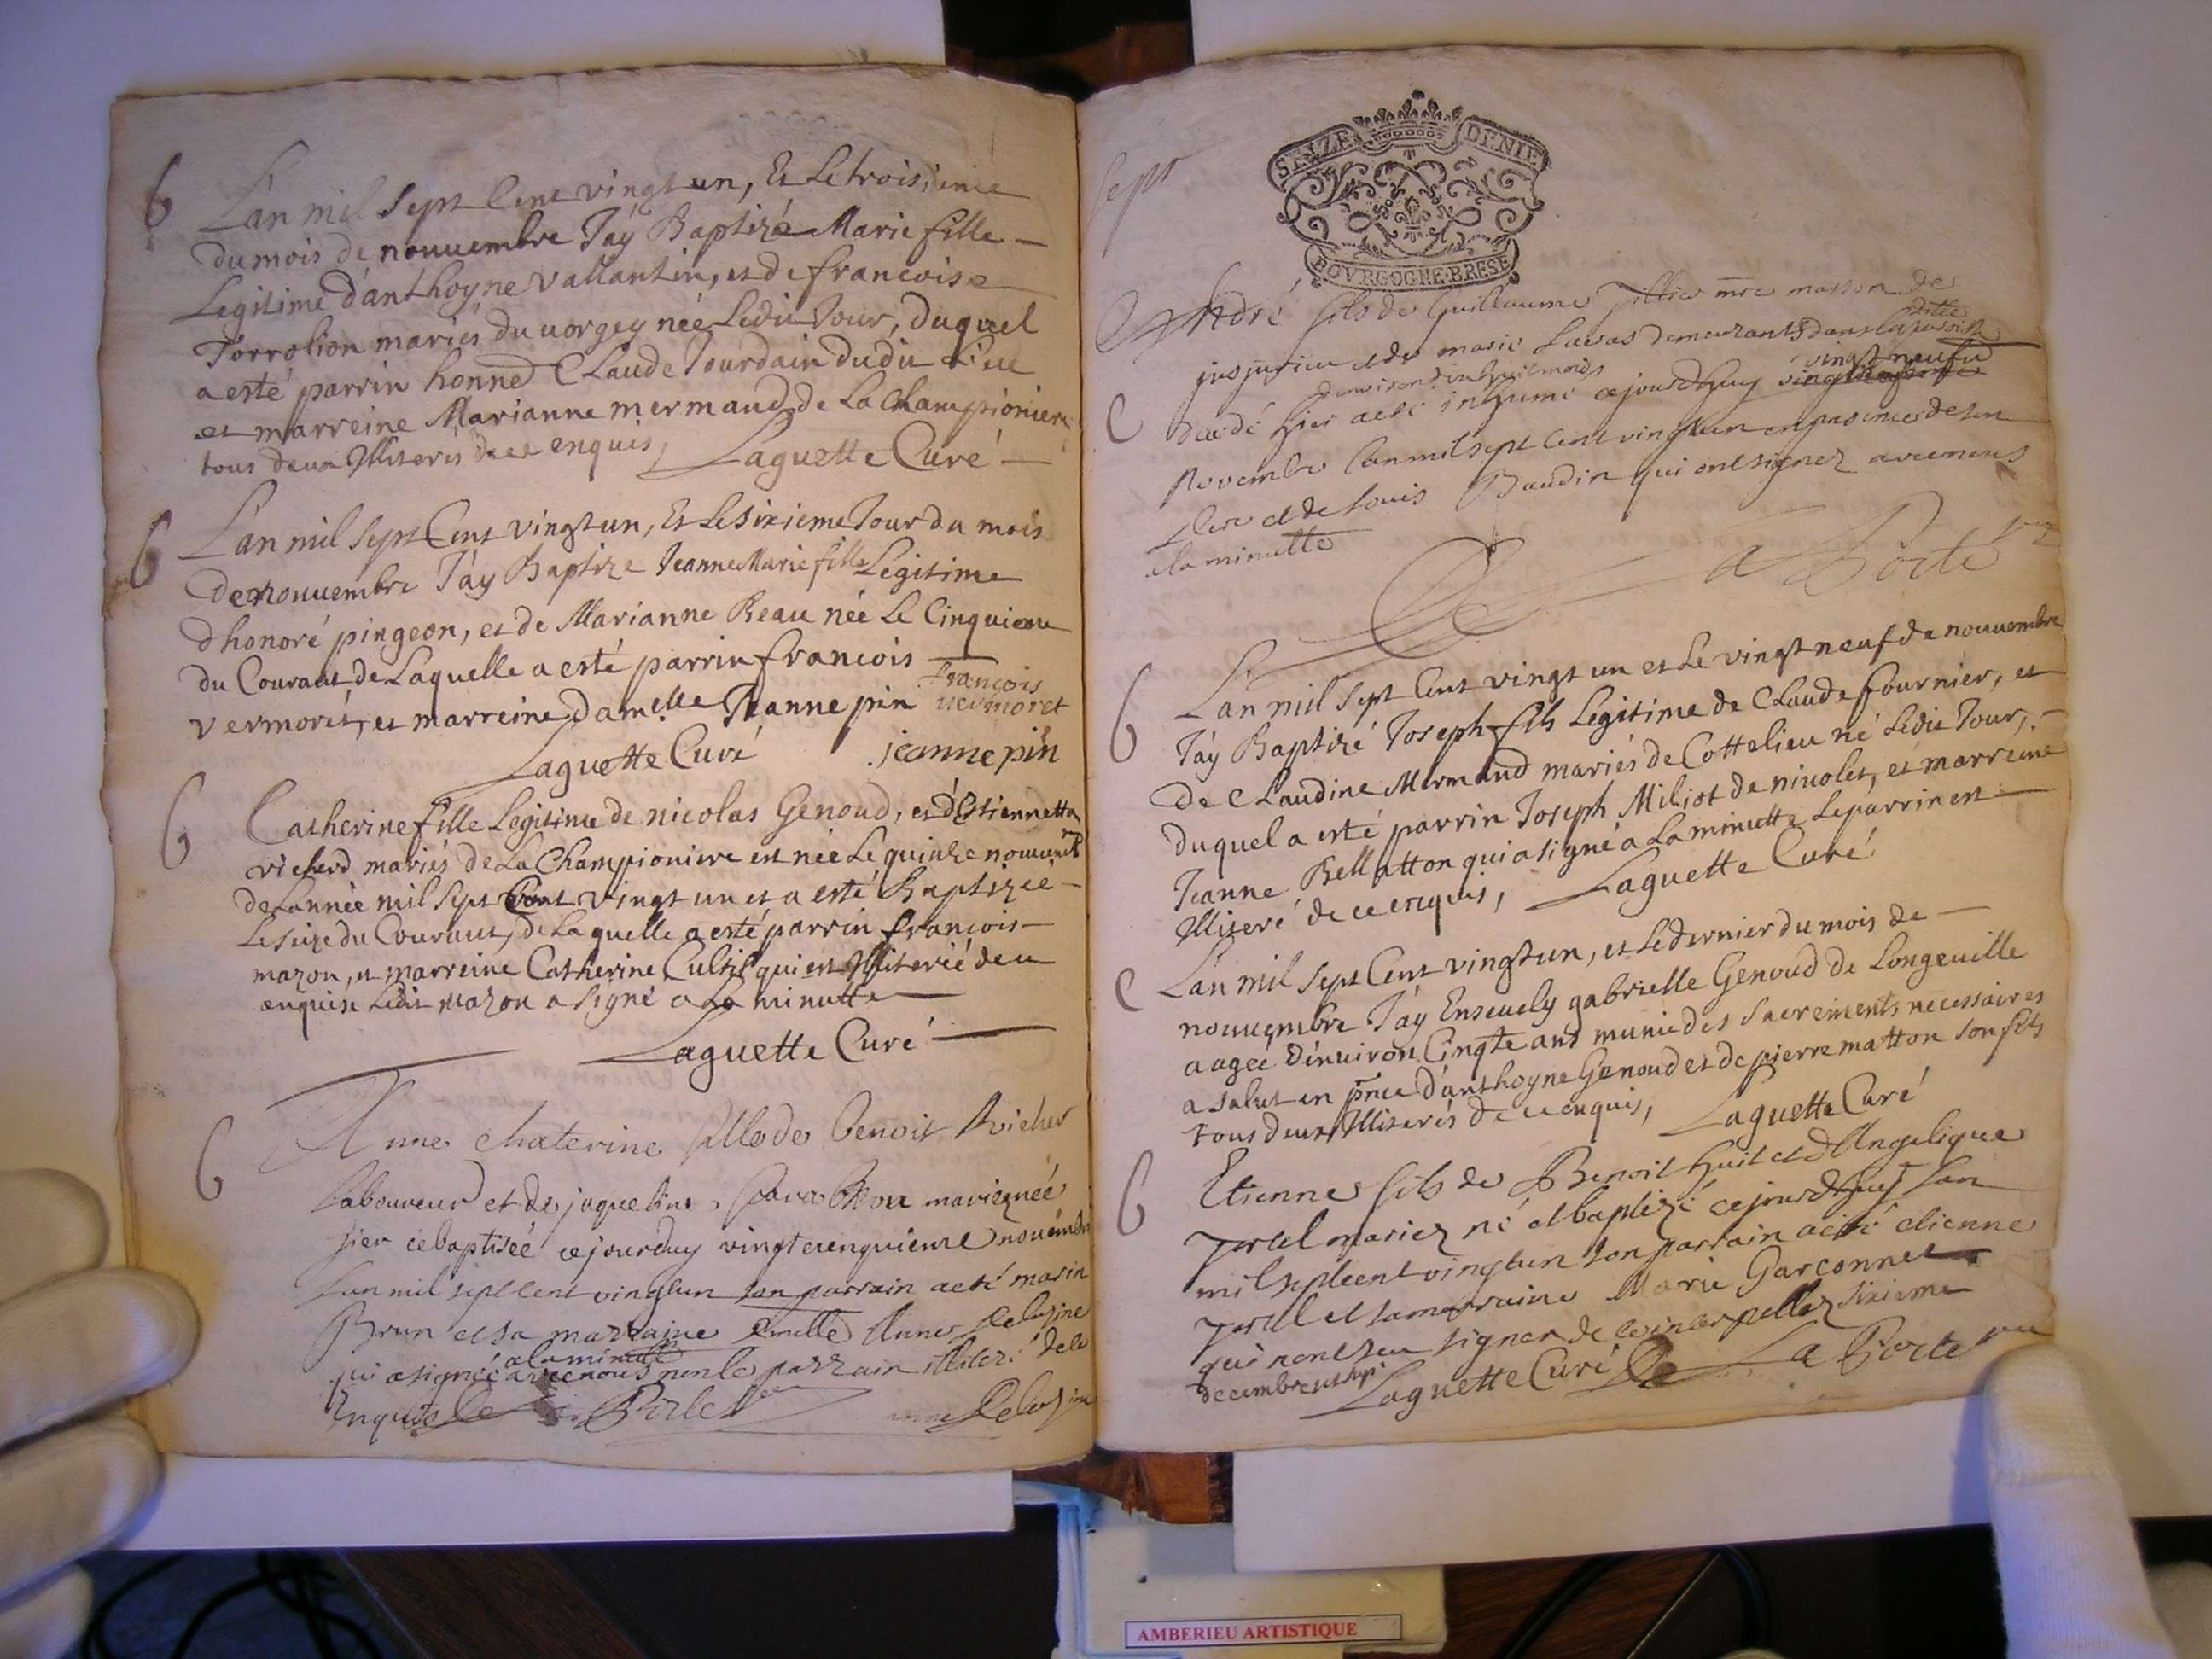 6
L'an mil sept Cent vingt un, Et Le troisieme
du mois de nouuembre J'ay Baptizé Marie fille
Legitime d'anthoyne vallantin, et de francoise
Torrolion mariés du uorgey née Ledit Jour, duquel
a esté parrin honned Claude Jourdain dudit Lieu
et marreine Marianne mermand de La Championiere
tous deux Illiterés de ce enquis, Laguette Curé
6
L'an mil sept Cent vingt un, Et Le sixieme Jour du mois
de nouuembre J'ay Baptize Jeanne Marie fille Legitime
d'honoré pingeon, et de Marianne Beau née Le Cinquieme
du Courant de Laquelle a esté parrin francois
vermoret, et marreine damelle Jeanne pin
francois
uermoret
Laguette Curé jeanne pin
6
Catherine fille Legitime de nicolas Genoud, et d'Estiennette
vicherd mariés de La Championiere est née Le quinze nouuembre
de Lannée mil sept Cent vingt un et a esté Baptizée
Le seize du Courant, de Laquelle a esté parrin francois
mazon, et marreine Catherine Cultil qui est Illiterée de ce
enquise Ledit mazon a signé a La minutte
Laguette Curé
6
Anne chaterine fille de benoit Richer
laboureur et de jaqueline mariez née
hier et baptisée ce jourduy vingt cinquieme nouembre
lan mil sept cent vingt un son parrain a eté marin
Brun et sa marraine Emelle Anne Delozine
qui a signéé a la minutte avec nous non le parrain illiteré de ce
Enquis De La Porte vre anne Delozine
Sept
SEIZE DENIE
BOVRGOGNE·BRESE
André fils de Guillaume Tillier mre masson de
jusjurieu et de marie Lucas demeurants dans la ditte paroisse
decedé hier agé d'environ dix huit mois a eté inhumé ce jourdhuy vingt neufu
C
Novembre lan mil sept cent vingt un en presence de son
clerc et de Louis Baudin qui ont signez avec nous
a la minutte
De La Porte vre
6
L'an mil sept Cent vingt un et Le vingt neuf de nouuembre
J'ay Baptizé Joseph fils Legitime de Claude fournier, et
de Claudine Mermand mariés de Cottelieu né Ledit Jour,
duquel a esté parrin Joseph Miliot de niuolet, et marreine
Jeanne Bellatton qui a signé a La minutte Le parrin est
Illiteré de ce enquis, Laguette Curé
C
L'an mil sept Cent vingt un, et Le dernier du mois de
nouuembre J'ay Enseuely gabrielle Genoud de Longeuille
aagée d'enuiron Cinqte ans munie des sacrements necessaires
a salut en pnce d'anthoyne Genoud et de pierre matton son fils
tous deux Illiterés de ce enquis, Laguette Curé
6
Etienne fils de Benoit huit et d'Angelique
mariez né et baptizé ce jourdhuy lan
mil sept cent vingt un son parrain a eté etienne
et sa marraine Marie Garconnet
qui n'ont seu signer de ce interpellez sixieme
decembre Laguette Curé De La Porte vre
AMBERIEU ARTISTIQUE